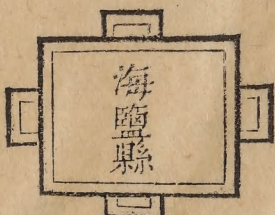 海鹽縣